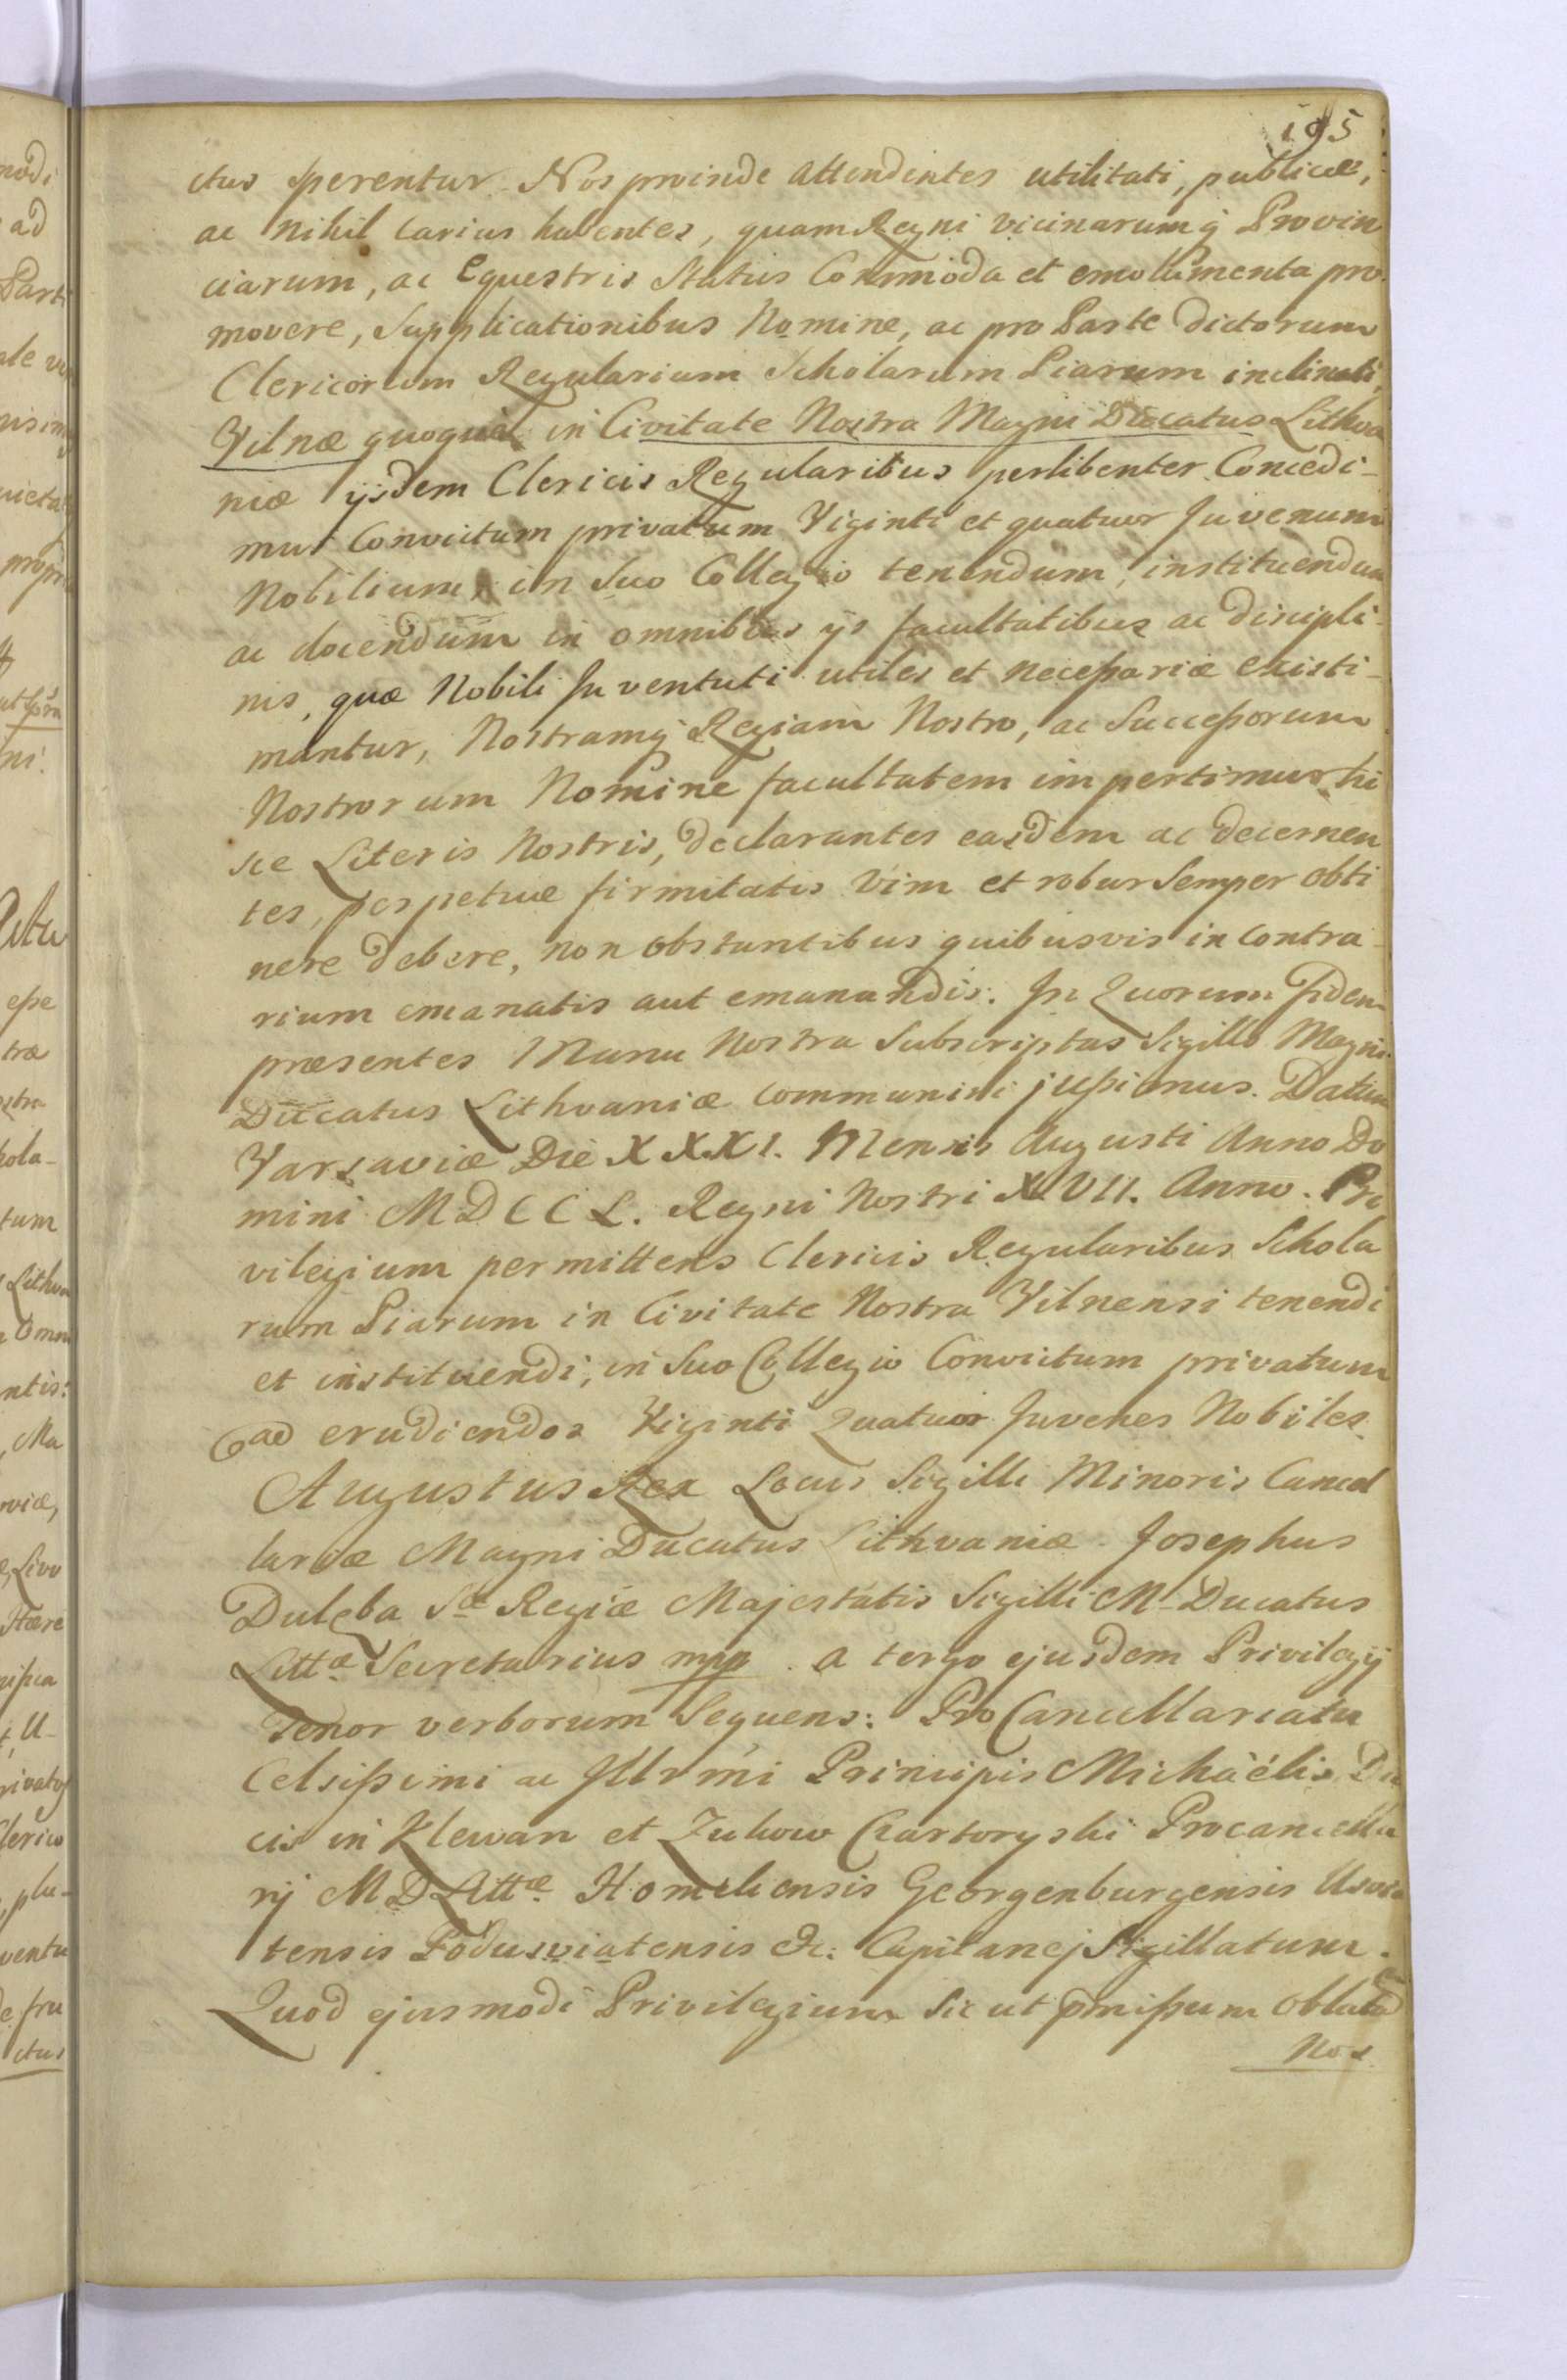 195
ctus sperentur. Nos proinde attendentes utilitati, publicæ,
ac nihil carius habentes, quam Regni vicinarumq̃ Provin
ciarum, ac Equestris Status Commoda et emolumenta pro-
movere, Supplicationibus Nomine, ac pro Parte dictorum
Clericorum Regularium Scholarum Piarum inclinati,
Vilnæ quoque in Civitate Nostra Magni Ducatus Lithva
niæ ijsdem Clericis Regularibus perlibenter Concedi-
mus Convictum privatum Viginti et quatuor Juvenum
Nobilium, in Suo Collegio tenendum, instituendum
ac docendum in omnibus ijs facultatibus ac discipli-
nis, quæ Nobili Juventuti utiles et necessariæ existi-
mantur, Nostramq̃ Regiam Nostro, ac Successorum
Nostrorum Nomine facultatem impertimus hi
sce Literis Nostris, declarantes easdem ac decernen
tes, perpetuæ firmitatis Vim et robur Semper obti
nere debere, non obstantibus quibusvis in contra-
rium emanatis aut emanandis. In Quorum Fidem
præsentes Manu Nostra Subscriptas Sigillo Magni
Ducatus Lithvaniæ communiri jussimus. Datum
Varsaviæ Die XXXI. Mensis Augusti Anno Do
mini MDCCL. Regni Nostri XVII. Anno. Pri
vilegium permittens Clericis Regularibus Schola
rum Piarum in Civitate Nostra Vilnensi tenendi
et instituendi, in Suo Collegio Convictum privatum
ad erudiendos Viginti Quatuor Juvenes Nobiles.
Augustus Rex Locus Sigilli Minoris Cancel
lariæ Magni Ducatus Lithvaniæ. Josephus
Duleba Sæ Regiæ Majestatis Sigilli M Ducatus
Littæ Secretarius mpp. a tergo ejusdem Privilegij
Tenor verborum Sequens: Pro Cancellariatu
Celsissimi ac Illrmi Principis Michaëlis Du
cis in Klewan et Zukow Czartoryski Procancella
rij M D Littæ Homeliensis Georgenburgensis Usvia
tensis Podusviatensis &c: Capitanej Sigillatum.
Quod ejusmodi Privilegium sicut pmissum oblatū
Nos